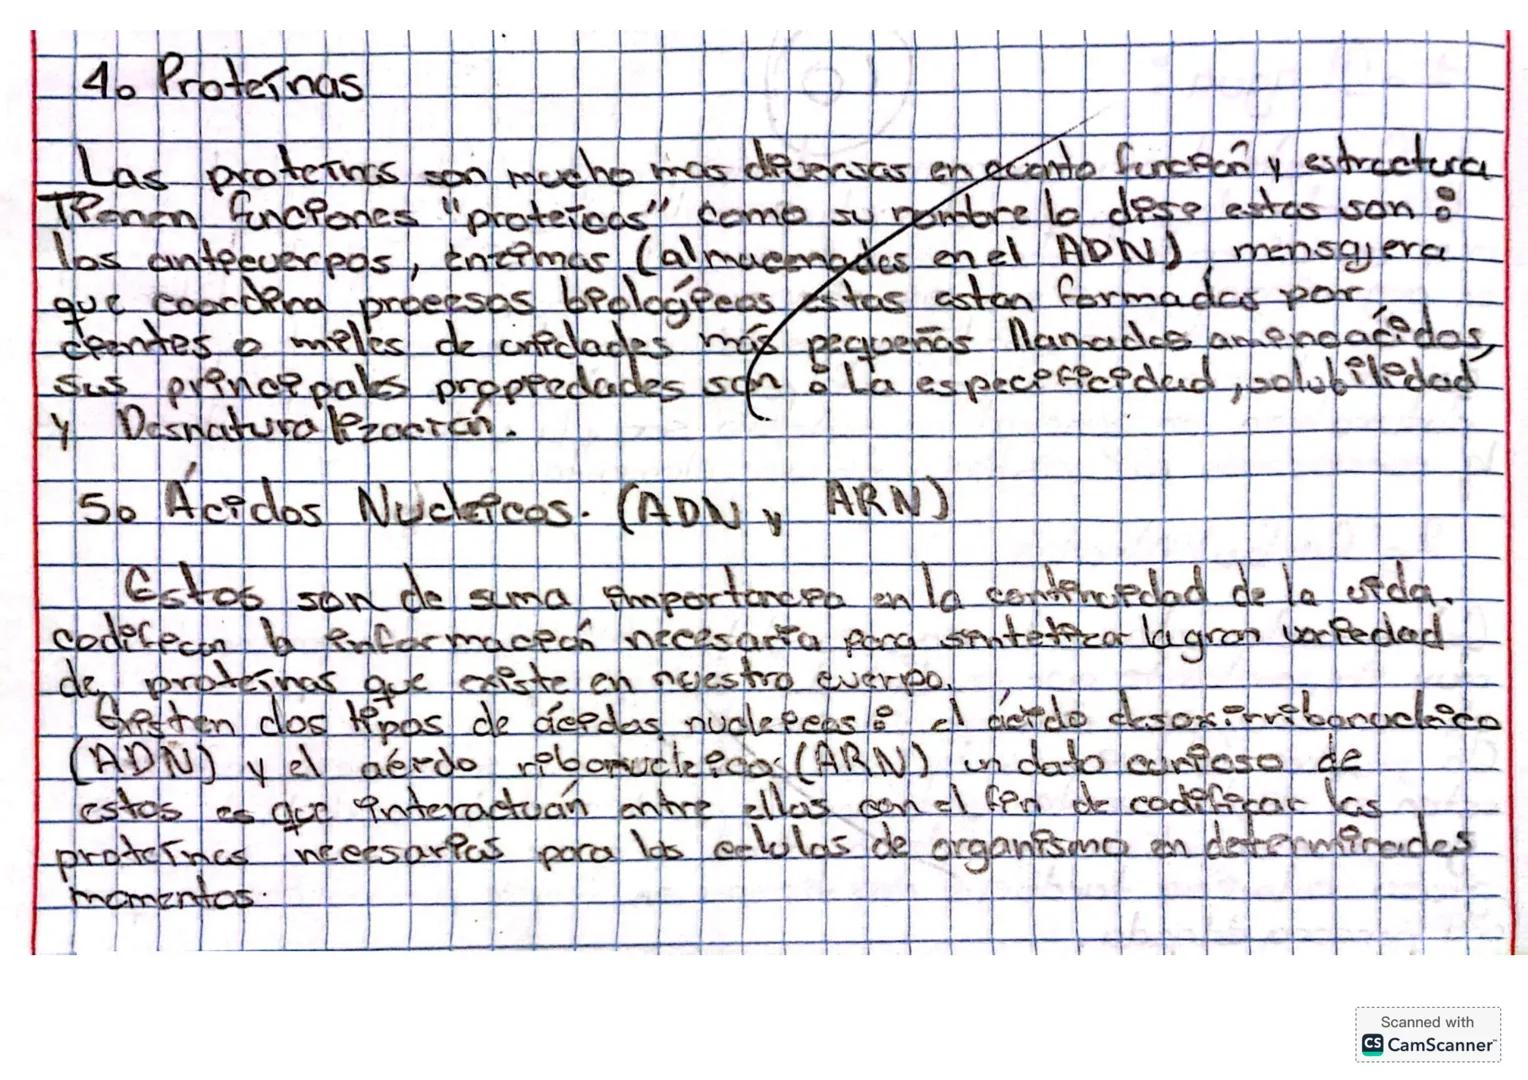 4. Proteínas
Las proteinas son mucho mas diversas en cuanto función y estructura
Tienen funciones "proteicas" como su nombre lo dise estas son :
los anticuerpos, Enzimas (almacenados en el ADN), mensajera
que coordina procesos biológicos estas estan formadas por
cientos o miles de unidades más pequeñas llamadas aminoácidos,
sus principales propiedades son : La especificidad, solubilidad
y Desnaturalización.
5. Ácidos Nucleicos. (ADN y ARN)
Estos son de suma importancia en la continuidad de la vida.
codifican la información necesaria para sintetizar la gran variedad
de proteínas que existe en nuestro cuerpo.
Existen dos tipos de ácidos nucleicos : el ácido desoxirribonucleico
(ADN) y el ácido ribonucleico (ARN) un dato curioso de
estos es que interactúan entre ellos con el fin de codificar las
proteínas necesarias para las celulas de organismo en determinados
momentos.
Scanned with
CS CamScanner